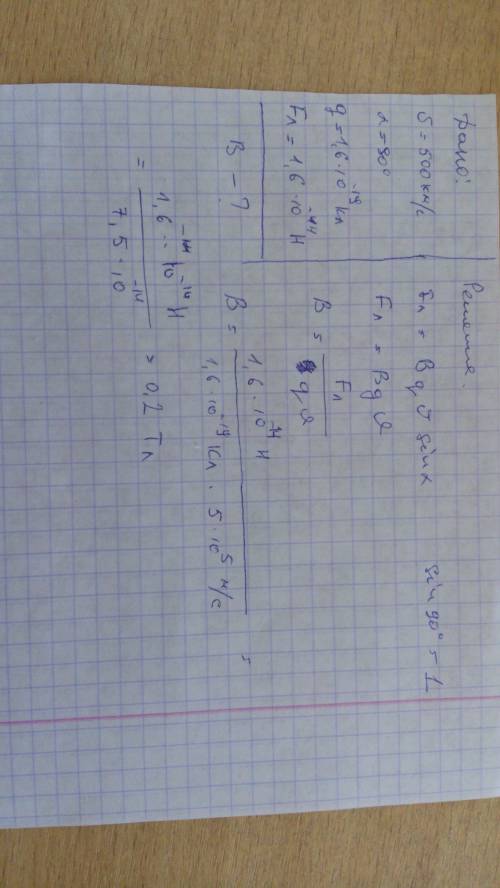 Дано:
S = 500 км/с
α = 90°
q = 1,6·10⁻¹⁹ Кл
Fл = 1,6·10⁻¹⁴ Н
B - ?
Решение.
Fл = B q υ sin α sin 90° = 1
Fл = B q υ
B = Fл / q υ
B = 1,6·10⁻¹⁴ Н / 1,6·10⁻¹⁹ Кл · 5·10⁵ м/с =
= 1,6·10⁻¹⁴ Н / 7,5·10⁻¹⁴ = 0,2 Тл